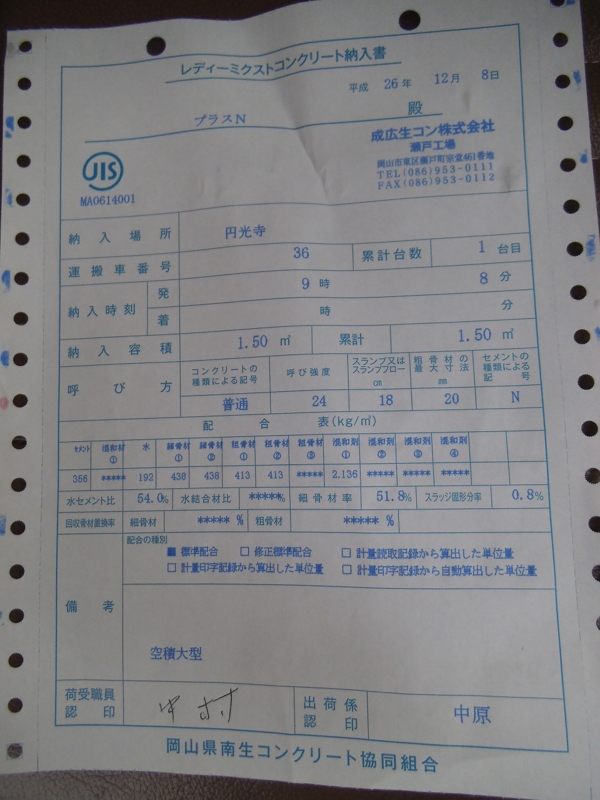 レディーミクストコンクリート納入書
平成 26年 12月 8日
プラスN 殿
成広生コン株式会社
瀬戸工場
岡山市東区瀬戸町宗堂461番地
TEL(086)953-0111
FAX(086)953-0112
JIS
MA0614001
納入場所 円光寺
運搬車番号 36 累計台数 1 台目
納入時刻 発 9 時 8 分
着 時 分
納入容積 1.50 ㎥ 累計 1.50 ㎥
呼び方 コンクリートの種類による記号 呼び強度 スランプ又はスランプフロー cm 粗骨材の最大寸法 mm セメントの種類による記号
普通 24 18 20 N
配合表(kg/㎥)
セメント 混和材① 水 細骨材① 細骨材② 粗骨材① 粗骨材② 粗骨材③ 混和剤① 混和剤② 混和剤③ 混和剤④
356 ***** 192 438 438 413 413 ***** 2.136 ***** ***** *****
水セメント比 54.0% 水結合材比 *****% 細骨材率 51.8% スラッジ固形分率 0.8%
回収骨材置換率 細骨材 ***** % 粗骨材 ***** %
備考 配合の種別
■ 標準配合 □ 修正標準配合 □ 計量読取記録から算出した単位量
□ 計量印字記録から算出した単位量 □ 計量印字記録から自動算出した単位量
空積大型
荷受職員認印 中村 出荷係認印 中原
岡山県南生コンクリート協同組合